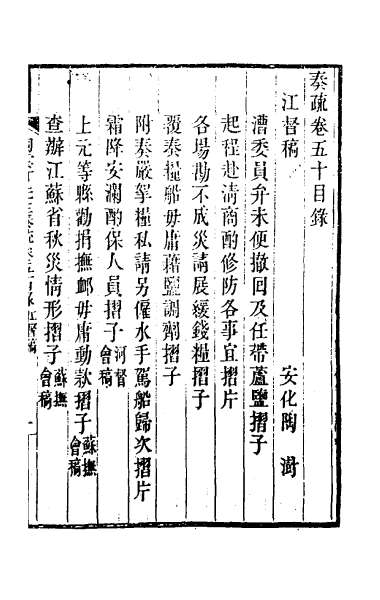 奏疏卷五十目錄
江督稿
安化陶澍
漕委員弁未便撤回及任帶蘆鹽摺子
起程赴清商酌修防各事宜摺片
各場勘不成災請展緩錢糧摺子
覆奏糧船毋庸藉鹽調劑摺子
附奏嚴拏糧私請另僱水手駕船歸次摺片
霜降安瀾酌保人員摺子 河督會稿
上元等縣勸捐撫卹毋庸動款摺子 蘇撫會稿
查辦江蘇省秋災情形摺子 蘇撫會稿